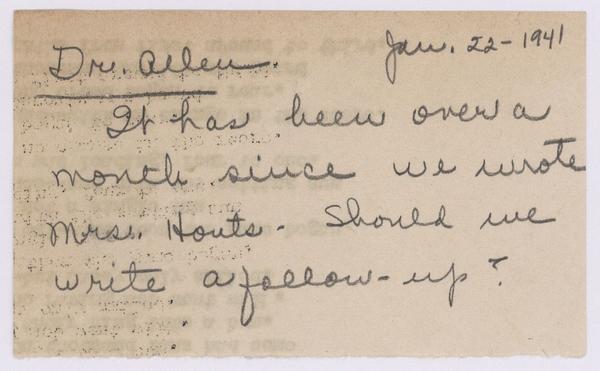 Jan. 22-1941
Dr. Allen.
It has been over a
month since we wrote
Mrs. Houts. Should we
write a follow-up?